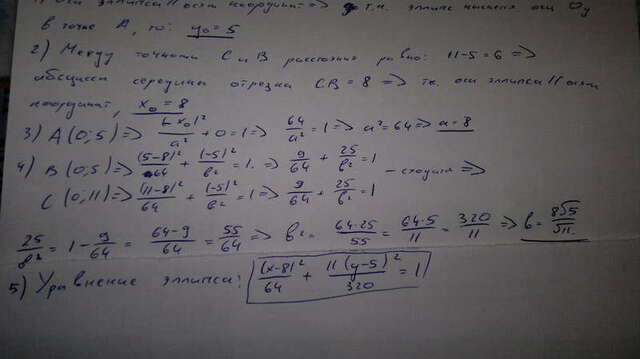 оси эллипса || осям координат => т.к. эллипс касается оси Oy
в точке A, то: y₀ = 5
2) Между точками C и B расстояния равно: 11-5=6 =>
абсцисса середины отрезка CB = 8 => т.к. оси эллипса || осям
координат, x₀ = 8
3) A(0;5) => (-x₀)²/a² + 0 = 1 => 64/a² = 1 => a² = 64 => a = 8
4) B(0;5) => (5-8)²/64 + (-5)²/b² = 1. => 9/64 + 25/b² = 1
C(0;11) => (11-8)²/64 + (-5)²/b² = 1 => 9/64 + 25/b² = 1 - сходится =>
25/b² = 1 - 9/64 = (64-9)/64 = 55/64 => b² = 64·25/55 = 64·5/11 = 320/11 => b = 8√5/√11.
5) Уравнение эллипса: (x-8)²/64 + 11(y-5)²/320 = 1